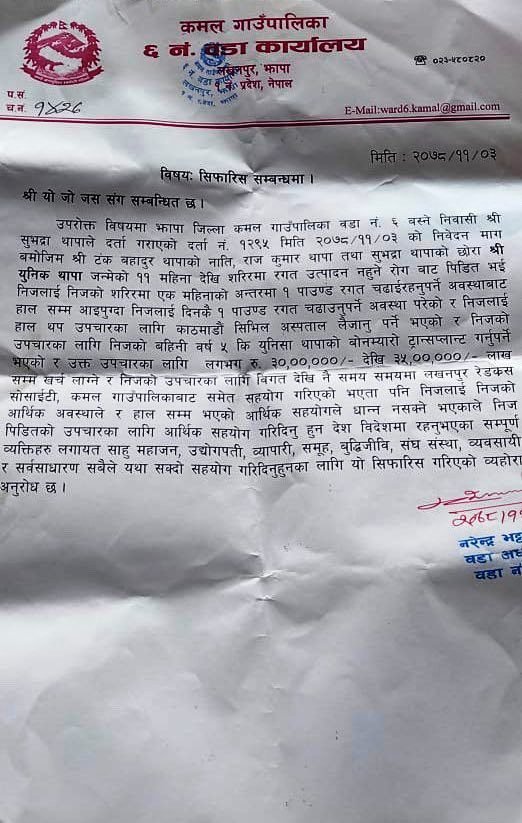 कमल गाउँपालिका
६ नं. वडा कार्यालय
लखनपुर, झापा
१ नं. प्रदेश, नेपाल
☎ ०२३-५८०८२०
प.सं.
च.नं. १४२६
E-Mail:ward6.kamal@gmail.com
मिति : २०७८/११/०३
विषय: सिफारिस सम्बन्धमा ।
श्री यो जो जस संग सम्बन्धित छ ।
उपरोक्त विषयमा झापा जिल्ला कमल गाउँपालिका वडा नं. ६ बस्ने निवासी श्री
सुभद्रा थापाले दर्ता गराएको दर्ता नं. १२९५ मिति २०७८/११/०३ को निवेदन माग
बमोजिम श्री टंक बहादुर थापाको नाति, राज कुमार थापा तथा सुभद्रा थापाको छोरा श्री
युनिक थापा जन्मेको ११ महिना देखि शरिरमा रगत उत्पादन नहुने रोग बाट पिडित भई
निजलाई निजको शरिरमा एक महिनाको अन्तरमा १ पाउण्ड रगत चढाईरहनुपर्ने अवस्थाबाट
हाल सम्म आइपुग्दा निजलाई दिनकै १ पाउण्ड रगत चढाउनुपर्ने अवस्था परेको र निजलाई
हाल थप उपचारका लागि काठमाडौं सिभिल अस्पताल लैजानु पर्ने भएको र निजको
उपचारका लागि निजको बहिनी वर्ष ५ कि युनिसा थापाको बोनम्यारो ट्रान्सप्लान्ट गर्नुपर्ने
भएको र उक्त उपचारका लागि लगभग रु. ३०,००,०००/- देखि ३५,००,०००/- लाख
सम्म खर्च लाग्ने र निजको उपचारका लागि विगत देखि नै समय समयमा लखनपुर रेडक्रस
सोसाईटी, कमल गाउँपालिकाबाट समेत सहयोग गरिएको भएता पनि निजलाई निजको
आर्थिक अवस्थाले र हाल सम्म भएको आर्थिक सहयोगले धान्न नसक्ने भएकाले निज
पिडितको उपचारका लागि आर्थिक सहयोग गरिदिनु हुन देश विदेशमा रहनुभएका सम्पूर्ण
व्यक्तिहरु लगायत साहु महाजन, उद्योगपती, व्यापारी, समूह, बुद्धिजीवि, संघ संस्था, व्यवसायी
र सर्वसाधारण सबैले यथा सक्दो सहयोग गरिदिनुहुनका लागि यो सिफारिस गरिएको व्यहोरा
अनुरोध छ ।
नरेन्द्र
वडा
वडा